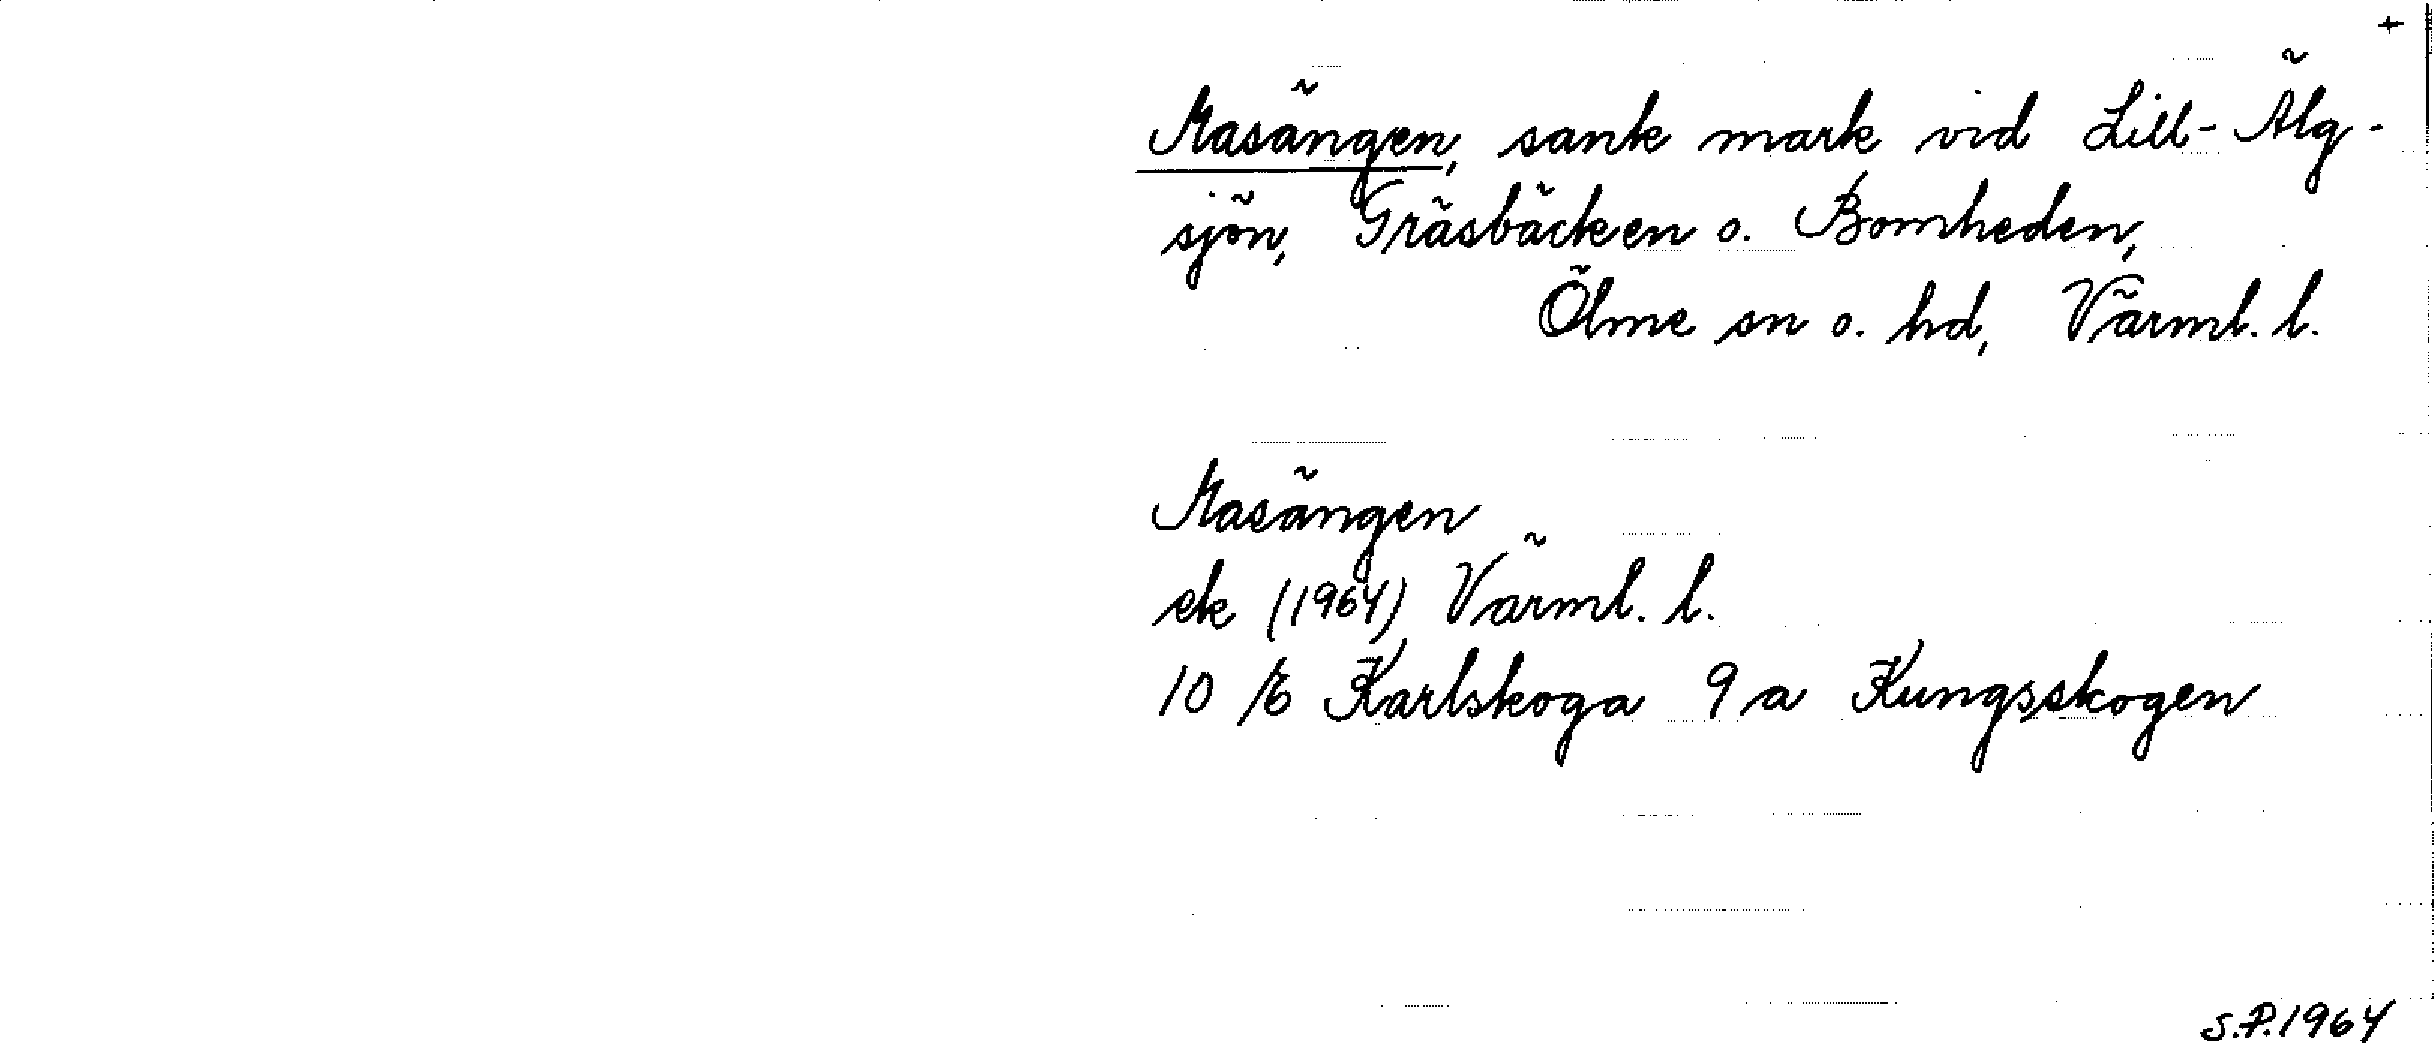 +
Masängen, sank mark vid Lill-Älg-
sjön, Gräsbäcken o. Bomheden,
Ölme sn o. hd, Värml. l.
Masängen
ek (1964) Värml. l.
10 E Karlskoga 9 a Kungsskogen
S.P. 1964